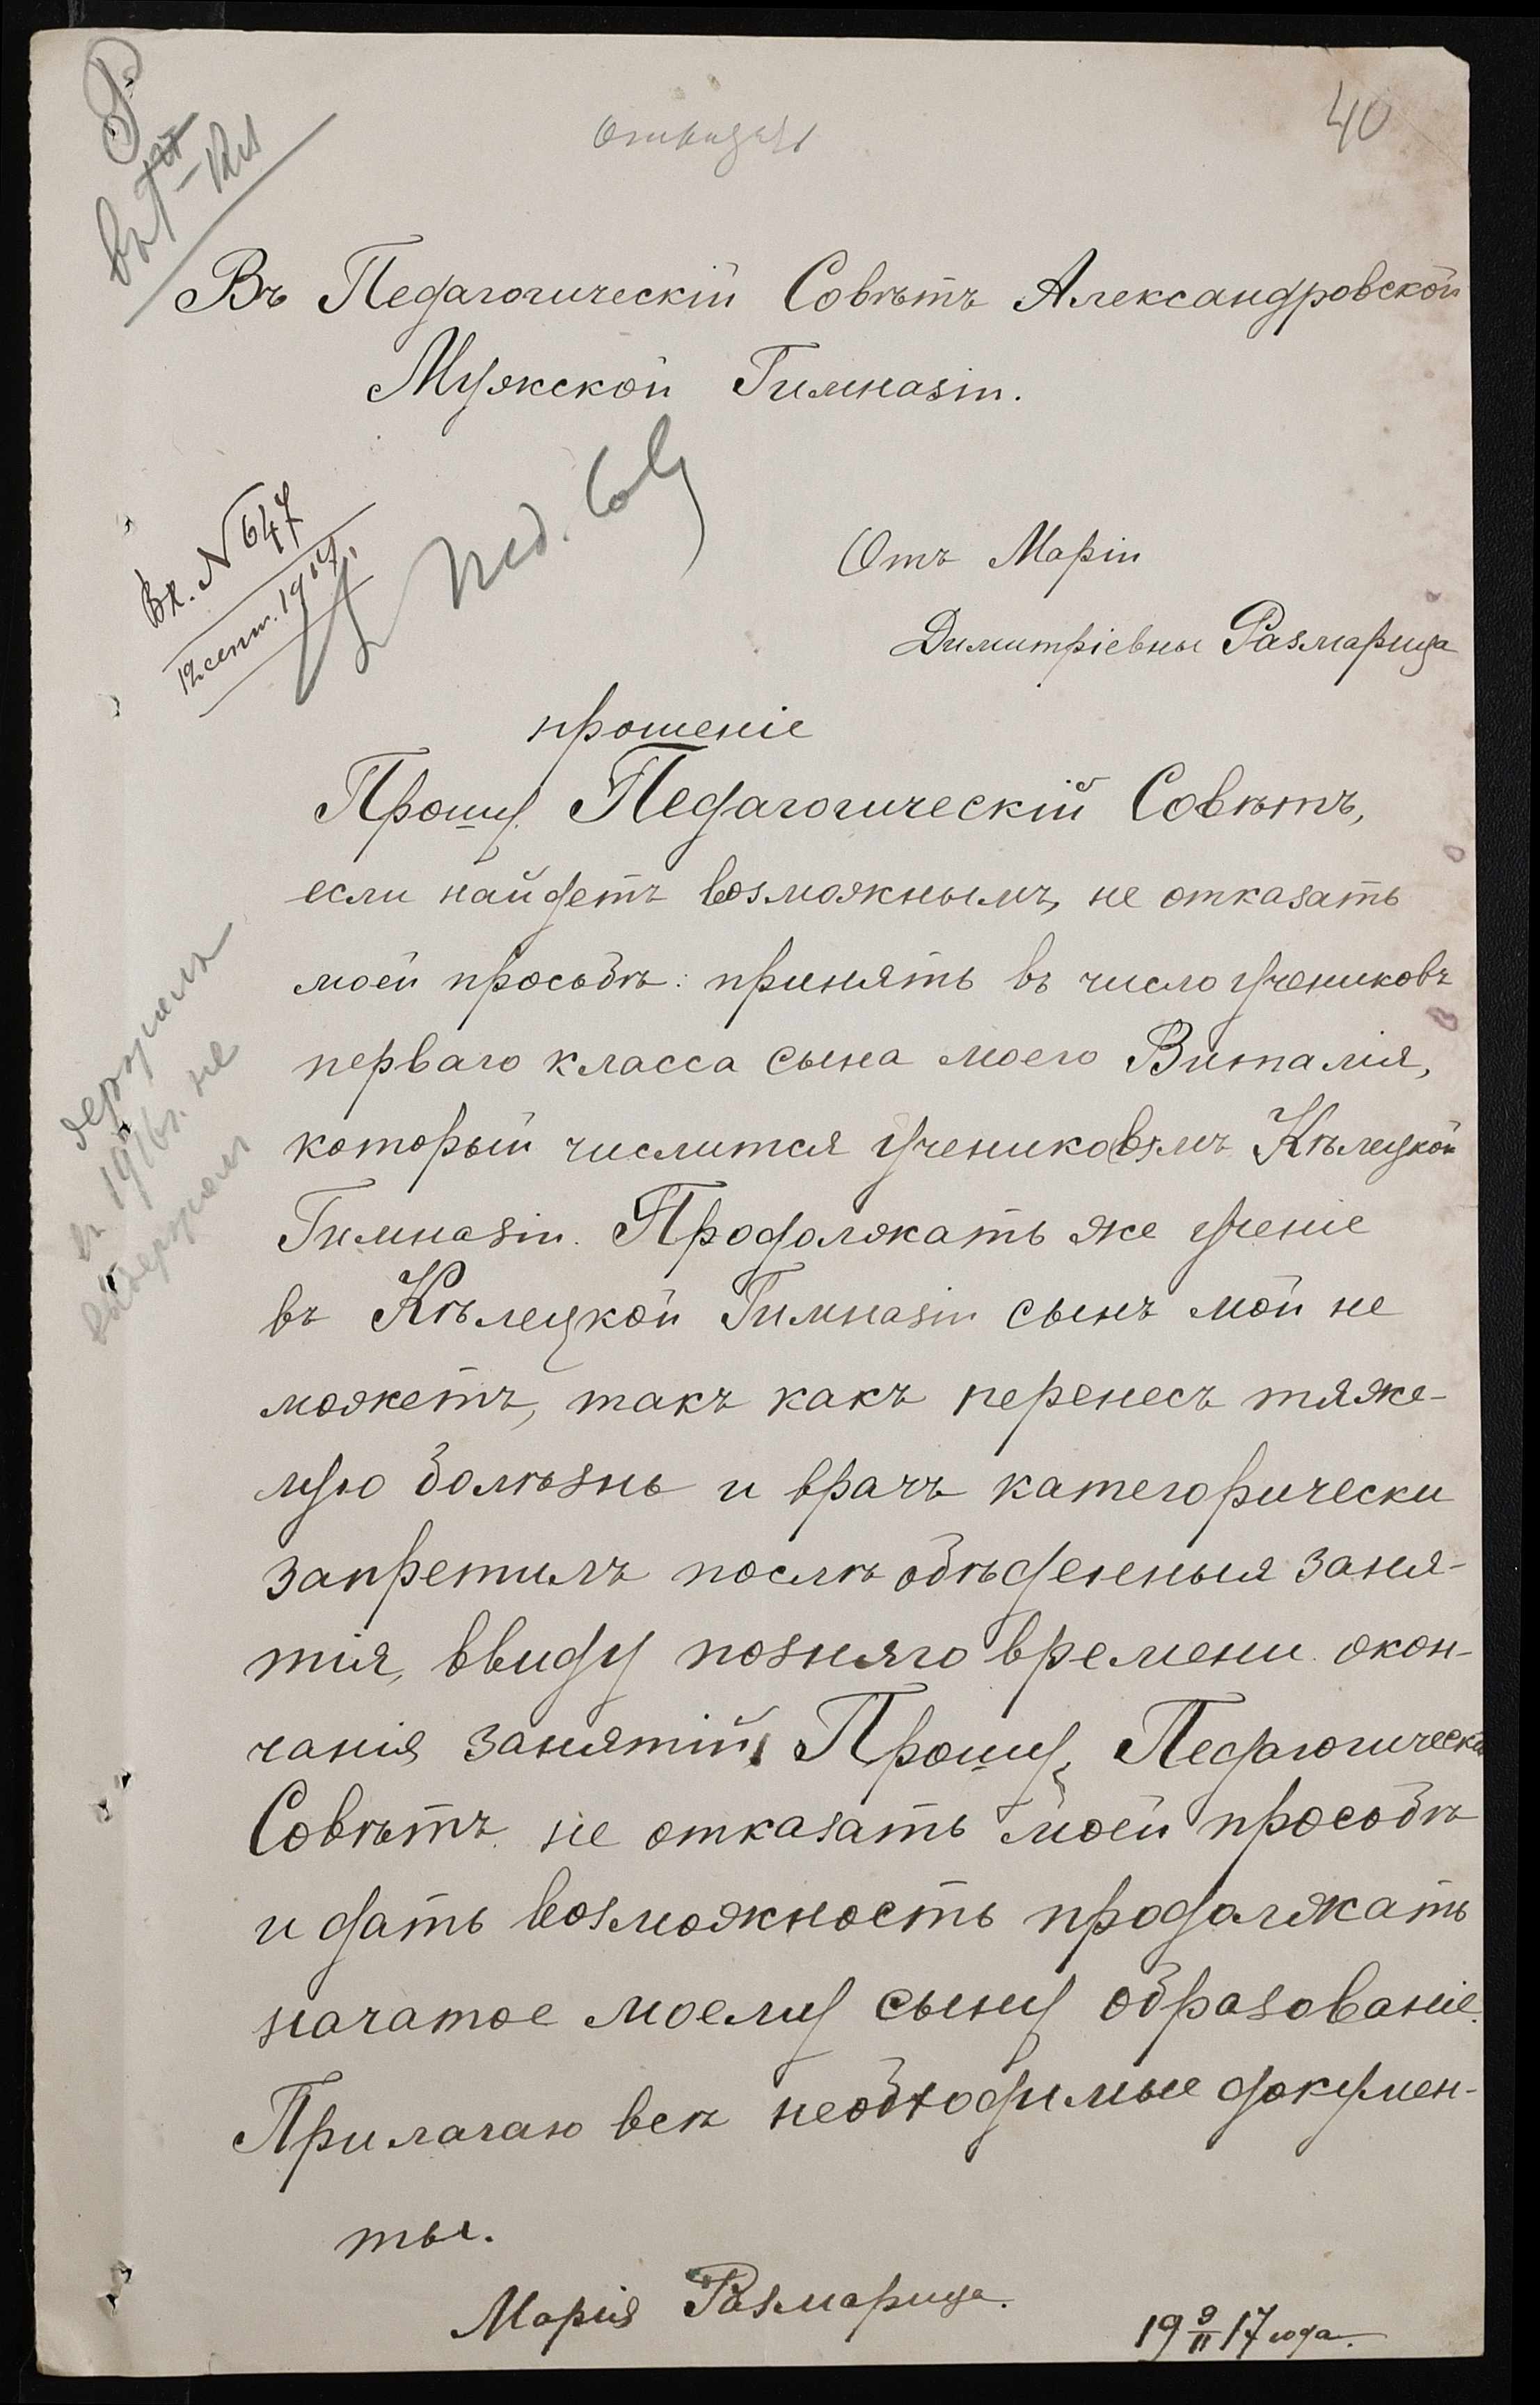 40
Въ Педагогическій Совѣтъ Александровской
Мужской Гимназіи.
Вх. № 647
12 сент. 1917 г.
Отъ Маріи
Димитріевны Размарица
прошеніе
Прошу Педагогическій Совѣтъ,
если найдетъ возможнымъ, не отказать
моей просьбѣ: принять въ число учениковъ
перваго класса сына моего Виталія,
который числится ученикомъ Кѣлецкой
Гимназіи. Продолжать же ученіе
въ Кѣлецкой Гимназіи сынъ мой не
можетъ, такъ какъ перенесъ тяже-
лую болѣзнь и врачъ категорически
запретилъ послѣ обѣденныя заня-
тія, ввиду позняго времени окон-
чанія занятій. Прошу Педагогическій
Совѣтъ не отказать моей прособѣ
и дать возможность продолжать
начатое моему сыну образованіе.
Прилагаю всѣ необходимые докумен-
ты.
Марія Размарица.
19 9/II 17 года.
держалъ
въ 1916 г. не
выдержалъ